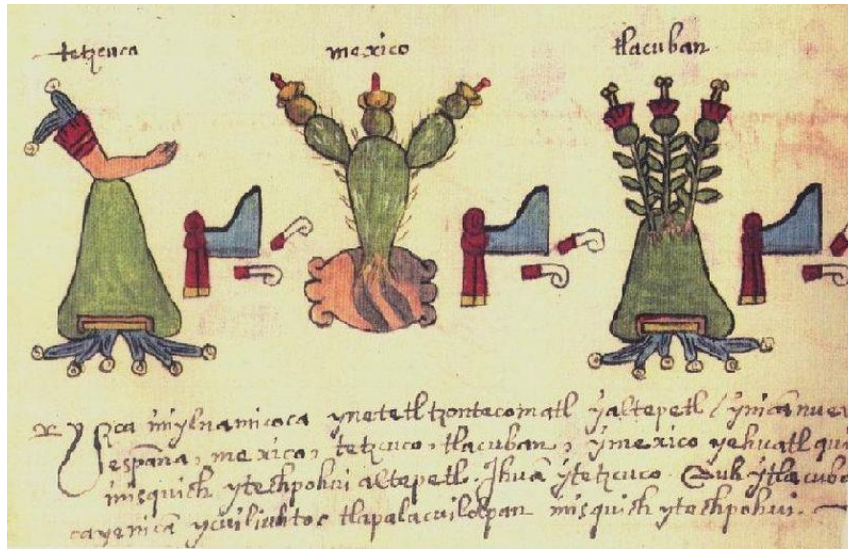 tetzcuca
mexico
tlacuban
yzca ynilnamicoca ynetetl tzontecomatl yaltepetl / ynican nue
españa, mexico, tetzcuco, tlacuban, ymexico yehuatl qui
ixquich ytechpohui altepetl. Ihuā ytetzcuco. Auh ytlacuba
ca yenicā ycuiliuhtoc tlapalacuilolpan ixquich ytechpohui.